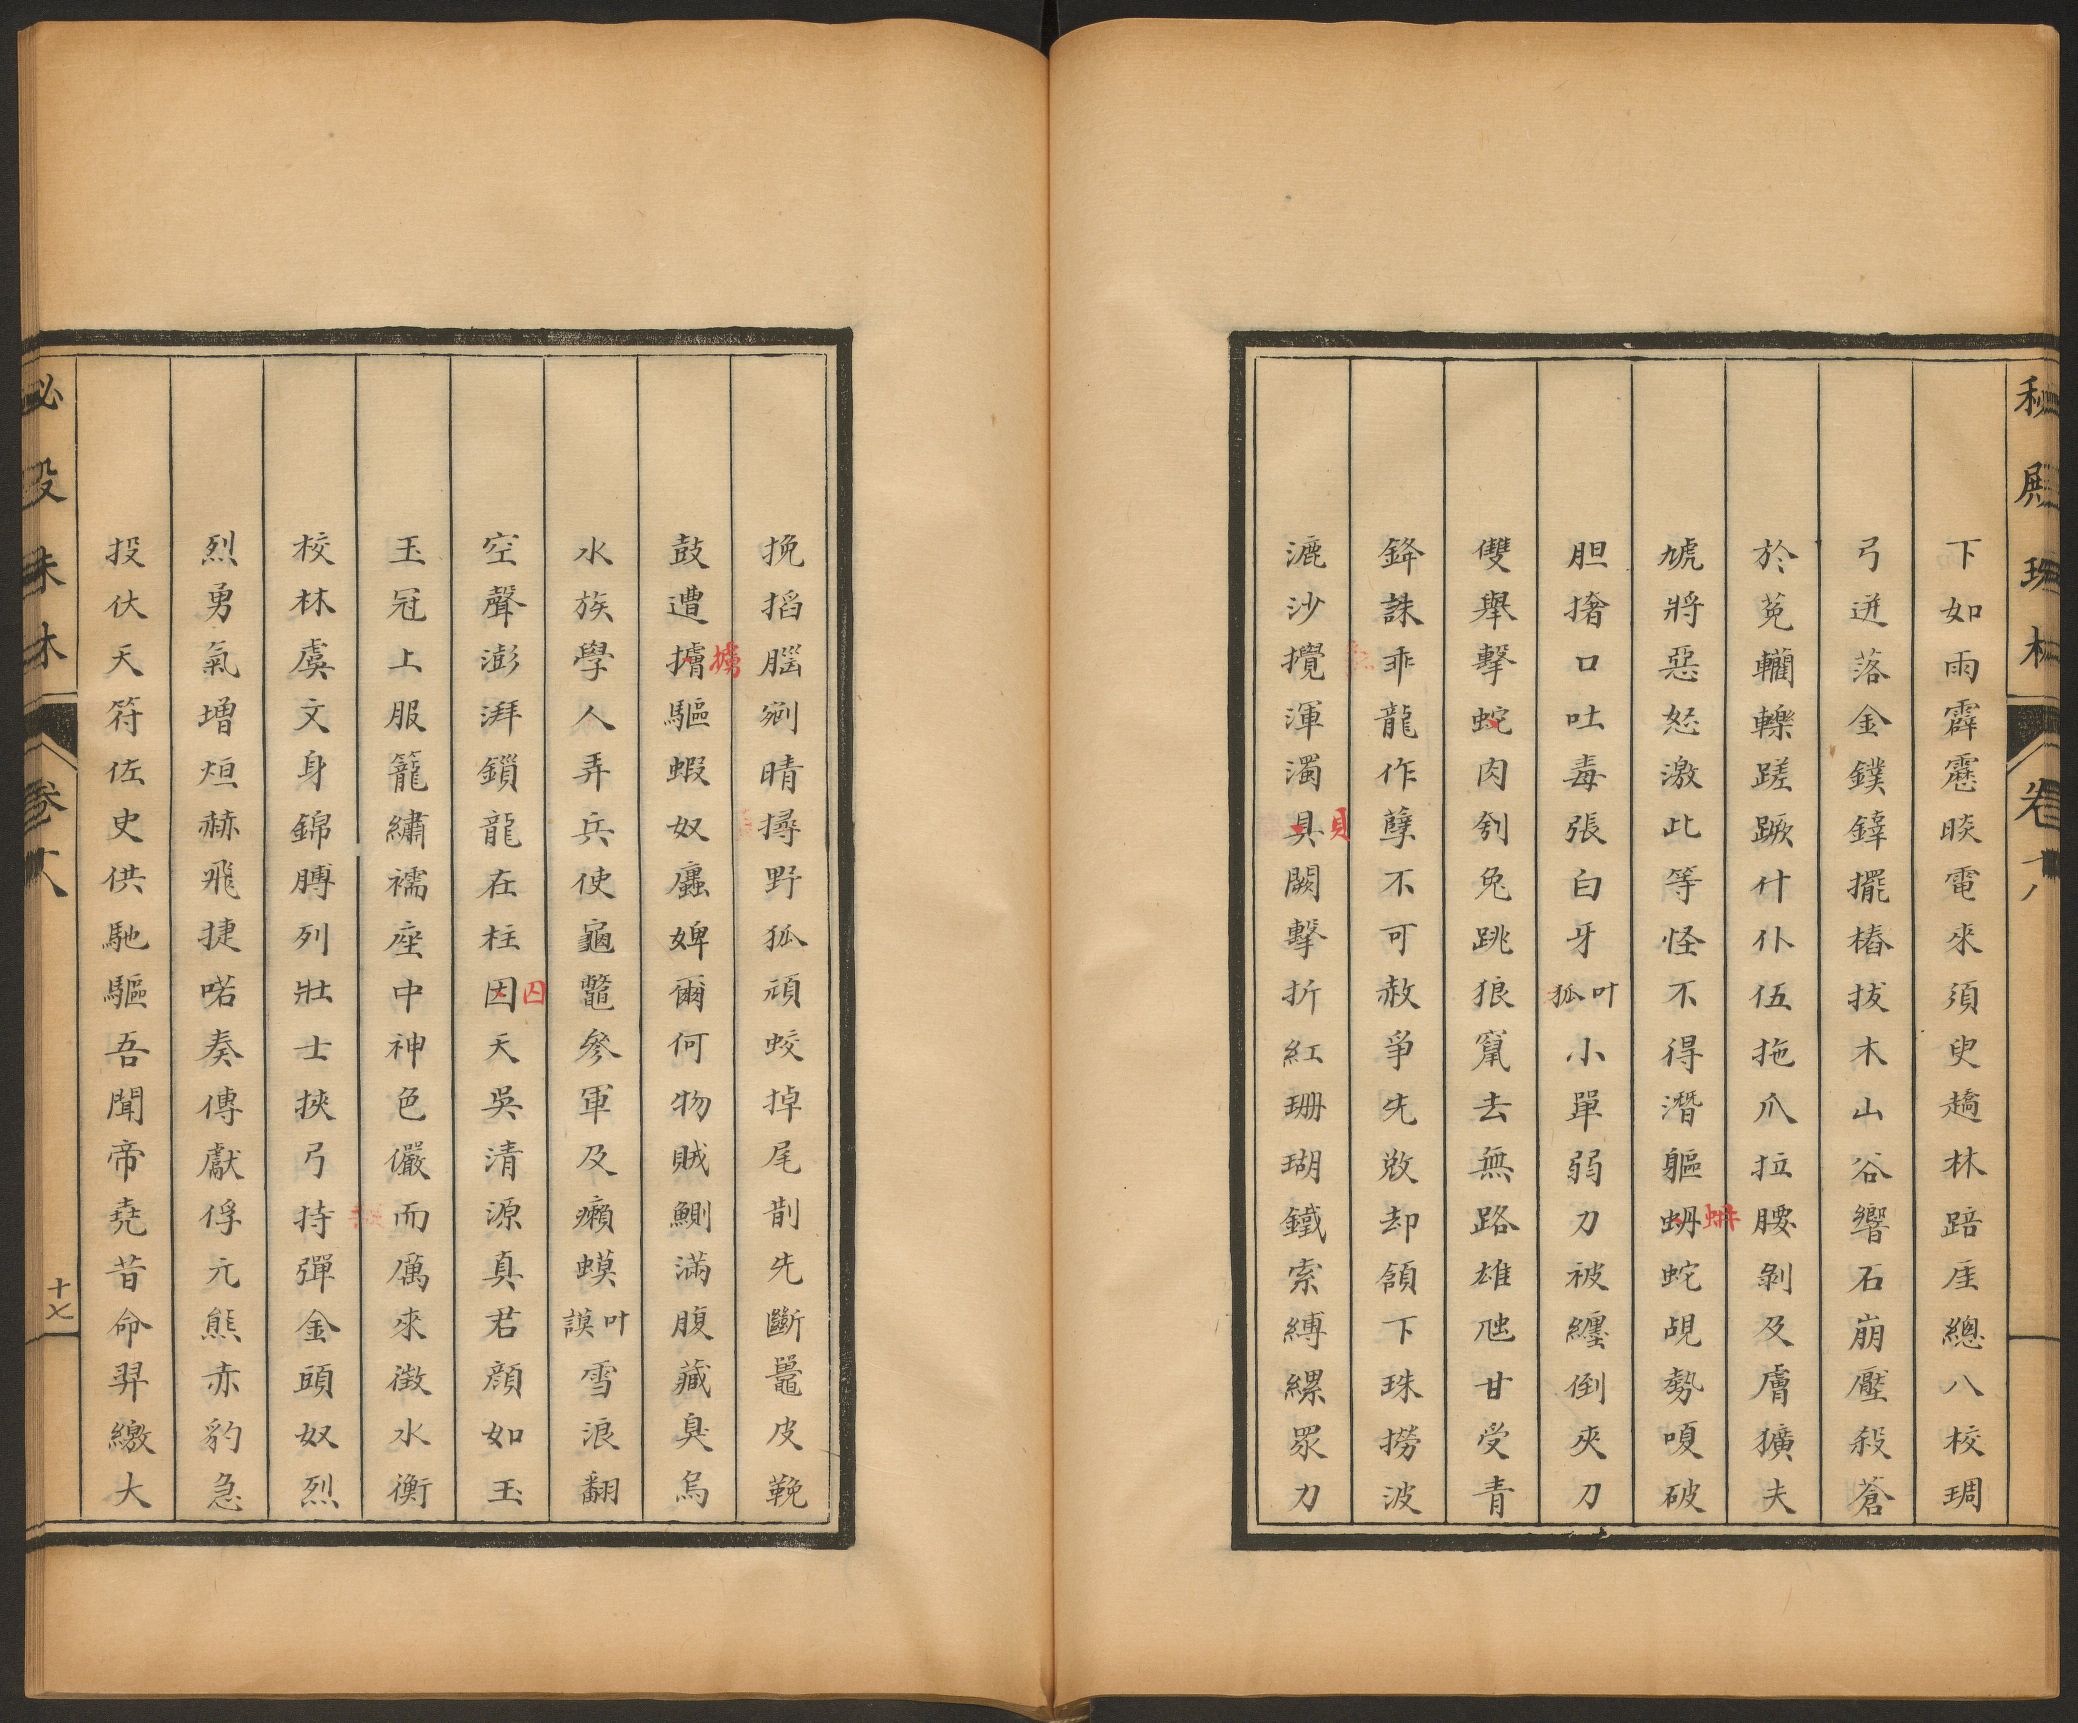 秘殿珠林 卷十八
下如雨霹靂晱電來須臾趫林踣崖總八校琱
弓迸落金鏷鋅擺樁拔木山谷響石崩壓殺蒼
於菟轥轢蹉蹶什仆伍拖爪拉腰剝及膚獷夫
虓將惡怒激此等怪不得潛軀蚦蛇覘勢嗊破
胆撦口吐毒張白牙叶狐小單弱刀被纏倒夾刀
雙舉擊蛇肉刳兔跳狼竄去無路雄虺甘受青
鋒誅乖龍作孽不可赦爭先敓却頷下珠撈波
漉沙攪渾濁具闕擊折紅珊瑚鐵索縛縲眾力
蚺
貝
挽掐腦剜睛撏野狐頑蛟掉尾剒先斷鼉皮鞔
鼓遭擄驅蝦奴廬婢爾何物賊鰂滿腹藏臭烏
水族學人弄兵使龜鼈參軍及癩蟆叶謨雪浪翻
空聲澎湃鎖龍在柱因天吳清源真君顏如玉
玉冠上服籠繡襦座中神色儼而厲來徵水衡
校林虞文身錦膊列壯士挾弓持彈金頭奴烈
烈勇氣增烜赫飛捷喏奏傳獻俘元熊赤豹急
投伏天符佐史供馳驅吾聞帝堯昔命羿繳大
擄
囚
秘殿珠林 卷十八 十七